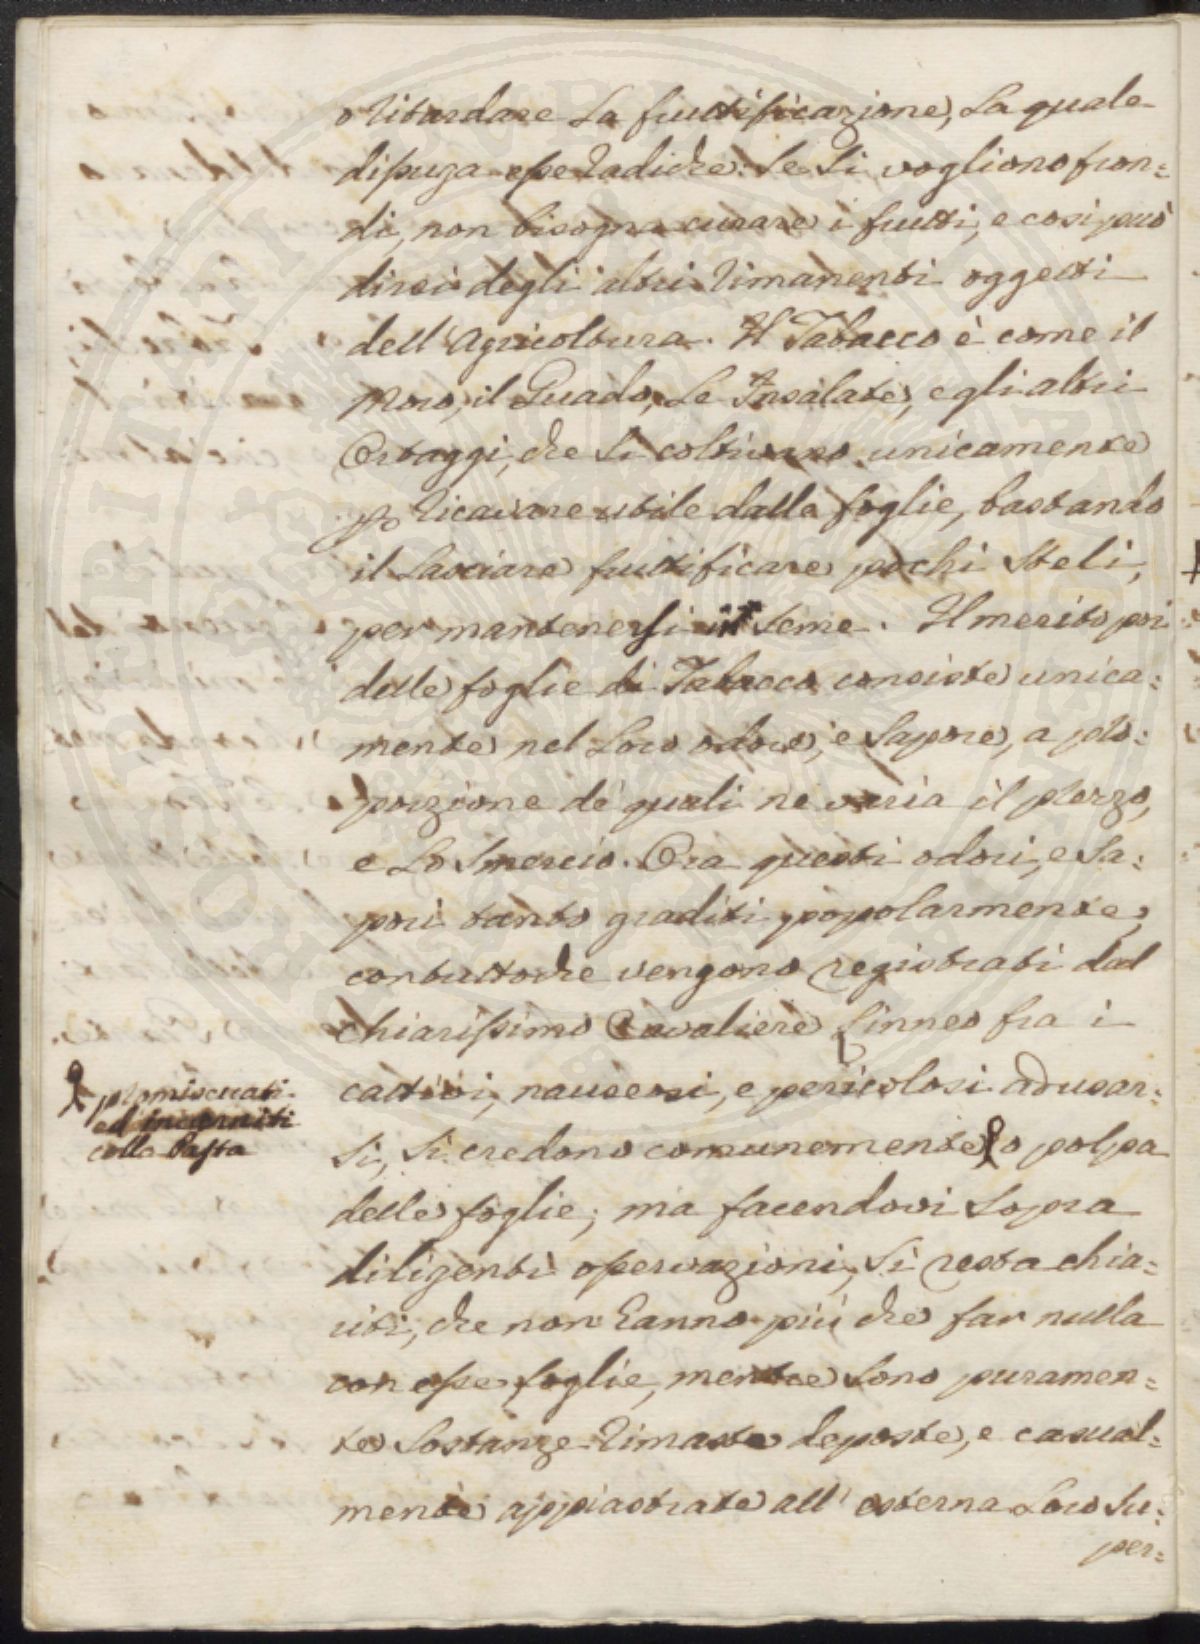 o ritardare la fruttificazione, la quale
dispuza esse radiche: Se si vogliono fron=
di, non bisogna curare i frutti, e così può
dirsi degli altri rimanenti oggetti
dell'Agricoltura. Il Tabacco è come il
Moro, il Guado, le Insalate, e gli altri
Ortaggi, che si coltivano unicamente
p ricavare utile dalle foglie, bastando
il lasciare fruttificare pochi steli,
per mantenersi il seme. Il merito poi
delle foglie di Tabacco consiste unica=
mente nel loro odore, e sapore, a pro=
porzione de' quali ne varia il prezzo,
e lo smercio. Ora questi odori, e sa=
pori tanto graditi popolarmente,
contuttoche vengono registrati dal
chiarissimo Cavaliere Linneo fra i
cattivi, nauseosi, e pericolosi ad usar=
si, si credono comunemente o polpa
delle foglie; ma facendovi sopra
diligenti osservazioni, si resta chia=
riti, che non hanno più che far nulla
con esse foglie, mentre sono puramen=
te sostanze rimaste deposte, e casual=
mente appiastrate all'esterna loro su=
per=
promiscuati
ed incarniti
colla Pasta
PROSPERITATI PUBLICAE